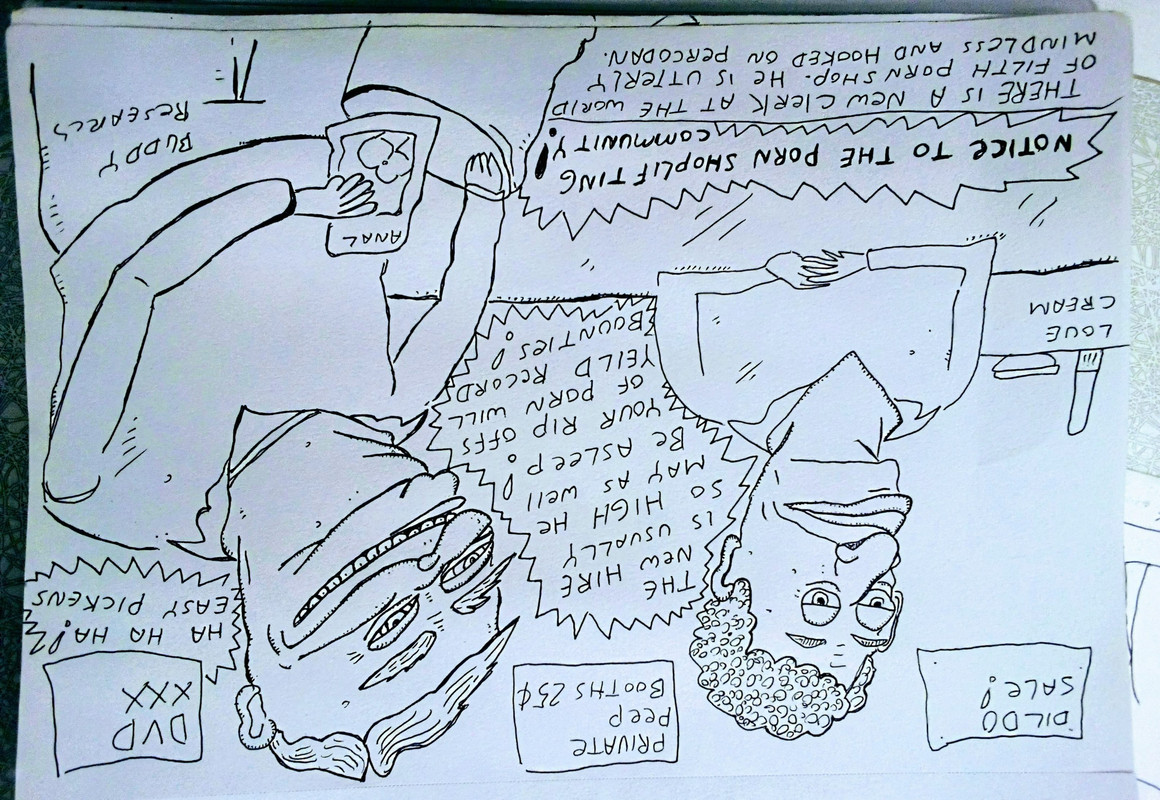 DILDO
SALE!
PRIVATE
PEEP
BOOTHS 25¢
DVD
XXX
HA HA HA!
EASY PICKENS
THE HIRE
NEW
IS USUALLY
SO HIGH HE
MAY AS WELL
BE ASLEEP!
YOUR RIP OFFS
OF PORN WILL
YEILD RECORD
BOUNTIES!
LOVE
CREAM
ANAL
NOTICE TO THE PORN SHOPLIFTING
COMMUNITY!
THERE IS A NEW CLERK AT THE WORLD
OF FILTH PORN SHOP. HE IS UTTERLY
MINDLESS AND HOOKED ON PERCODAN.
BUDDY